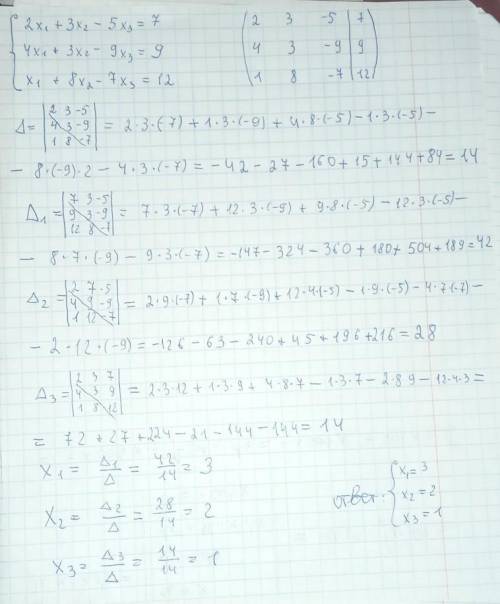 2x₁ + 3x₂ - 5x₃ = 7
4x₁ + 3x₂ - 9x₃ = 9
x₁ + 8x₂ - 7x₃ = 12
2 3 -5 | 7
4 3 -9 | 9
1 8 -7 | 12
Δ = |2 3 -5; 4 3 -9; 1 8 -7| = 2·3·(-7) + 1·3·(-9) + 4·8·(-5) - 1·3·(-5) -
- 8·(-9)·2 - 4·3·(-7) = -42 - 27 - 160 + 15 + 144 + 84 = 14
Δ₁ = |7 3 -5; 9 3 -9; 12 8 -7| = 7·3·(-7) + 12·3·(-9) + 9·8·(-5) - 12·3·(-5) -
- 8·7·(-9) - 9·3·(-7) = -147 - 324 - 360 + 180 + 504 + 189 = 42
Δ₂ = |2 7 -5; 4 9 -9; 1 12 -7| = 2·9·(-7) + 1·7·(-9) + 12·4·(-5) - 1·9·(-5) - 4·7(-7) -
- 2·12·(-9) = -126 - 63 - 240 + 45 + 196 + 216 = 28
Δ₃ = |2 3 7; 4 3 9; 1 8 12| = 2·3·12 + 1·3·9 + 4·8·7 - 1·3·7 - 2·8·9 - 12·4·3 =
= 72 + 27 + 224 - 21 - 144 - 144 = 14
x₁ = Δ₁/Δ = 42/14 = 3
x₂ = Δ₂/Δ = 28/14 = 2
x₃ = Δ₃/Δ = 14/14 = 1
ответ: x₁ = 3
x₂ = 2
x₃ = 1